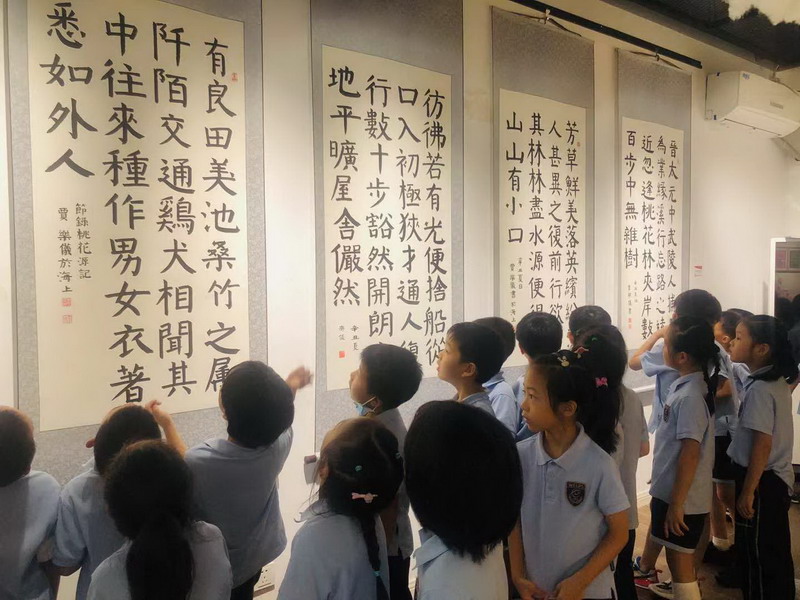 晉太元中武陵人捕
為業緣溪行忘路之遠
近忽逢桃花林夾岸數
百步中無雜樹
芳草鮮美落英繽紛
人甚異之復前行欲
其林林盡水源便得
山山有小口
彷彿若有光便捨船從
口入初極狹才通人復
行數十步豁然開朗
地平曠屋舍儼然
辛丑夏
有良田美池桑竹之屬
阡陌交通鷄犬相聞其
中往來種作男女衣著
悉如外人
節錄桃花源記
賈樂儀於海上